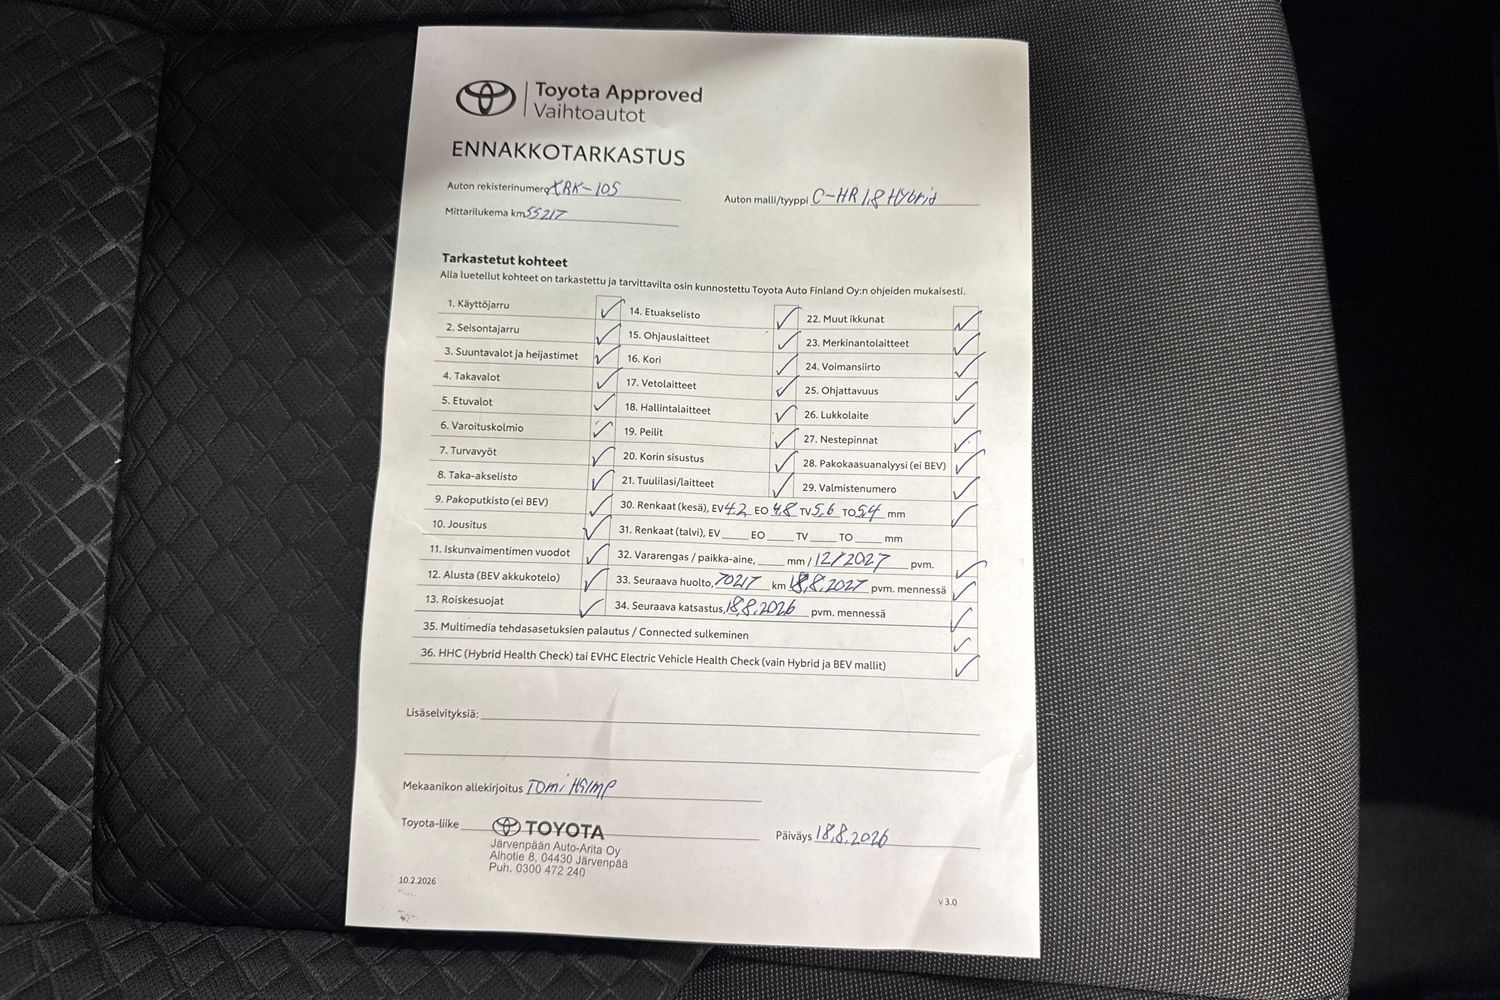 Toyota Approved
Vaihtoautot
ENNAKKOTARKASTUS
Auton rekisterinumero XRK-105
Auton malli/tyyppi C-HR 1,8 HYbrid
Mittarilukema km 55217
Tarkastetut kohteet
Alla luetellut kohteet on tarkastettu ja tarvittavilta osin kunnostettu Toyota Auto Finland Oy:n ohjeiden mukaisesti.
1. Käyttöjarru
2. Seisontajarru
3. Suuntavalot ja heijastimet
4. Takavalot
5. Etuvalot
6. Varoituskolmio
7. Turvavyöt
8. Taka-akselisto
9. Pakoputkisto (ei BEV)
10. Jousitus
11. Iskunvaimentimen vuodot
12. Alusta (BEV akkukotelo)
13. Roiskesuojat
14. Etuakselisto
15. Ohjauslaitteet
16. Kori
17. Vetolaitteet
18. Hallintalaitteet
19. Peilit
20. Korin sisustus
21. Tuulilasi/laitteet
22. Muut ikkunat
23. Merkinantolaitteet
24. Voimansiirto
25. Ohjattavuus
26. Lukkolaite
27. Nestepinnat
28. Pakokaasuanalyysi (ei BEV)
29. Valmistenumero
30. Renkaat (kesä), EV 4.2 EO 4.8 TV 5,6 TO 5,4 mm
31. Renkaat (talvi), EV EO TV TO mm
32. Vararengas / paikka-aine, mm / 12/2027 pvm.
33. Seuraava huolto, 70217 km 18,8,2027 pvm. mennessä
34. Seuraava katsastus, 18,8,2026 pvm. mennessä
35. Multimedia tehdasasetuksien palautus / Connected sulkeminen
36. HHC (Hybrid Health Check) tai EVHC Electric Vehicle Health Check (vain Hybrid ja BEV mallit)
Lisäselvityksiä:
Mekaanikon allekirjoitus Tomi
Toyota-liike TOYOTA
Järvenpään Auto-Arita Oy
Alhotie 8, 04430 Järvenpää
Puh. 0300 472 240
Päiväys 18,8,2026
10.2.2026
v 3.0